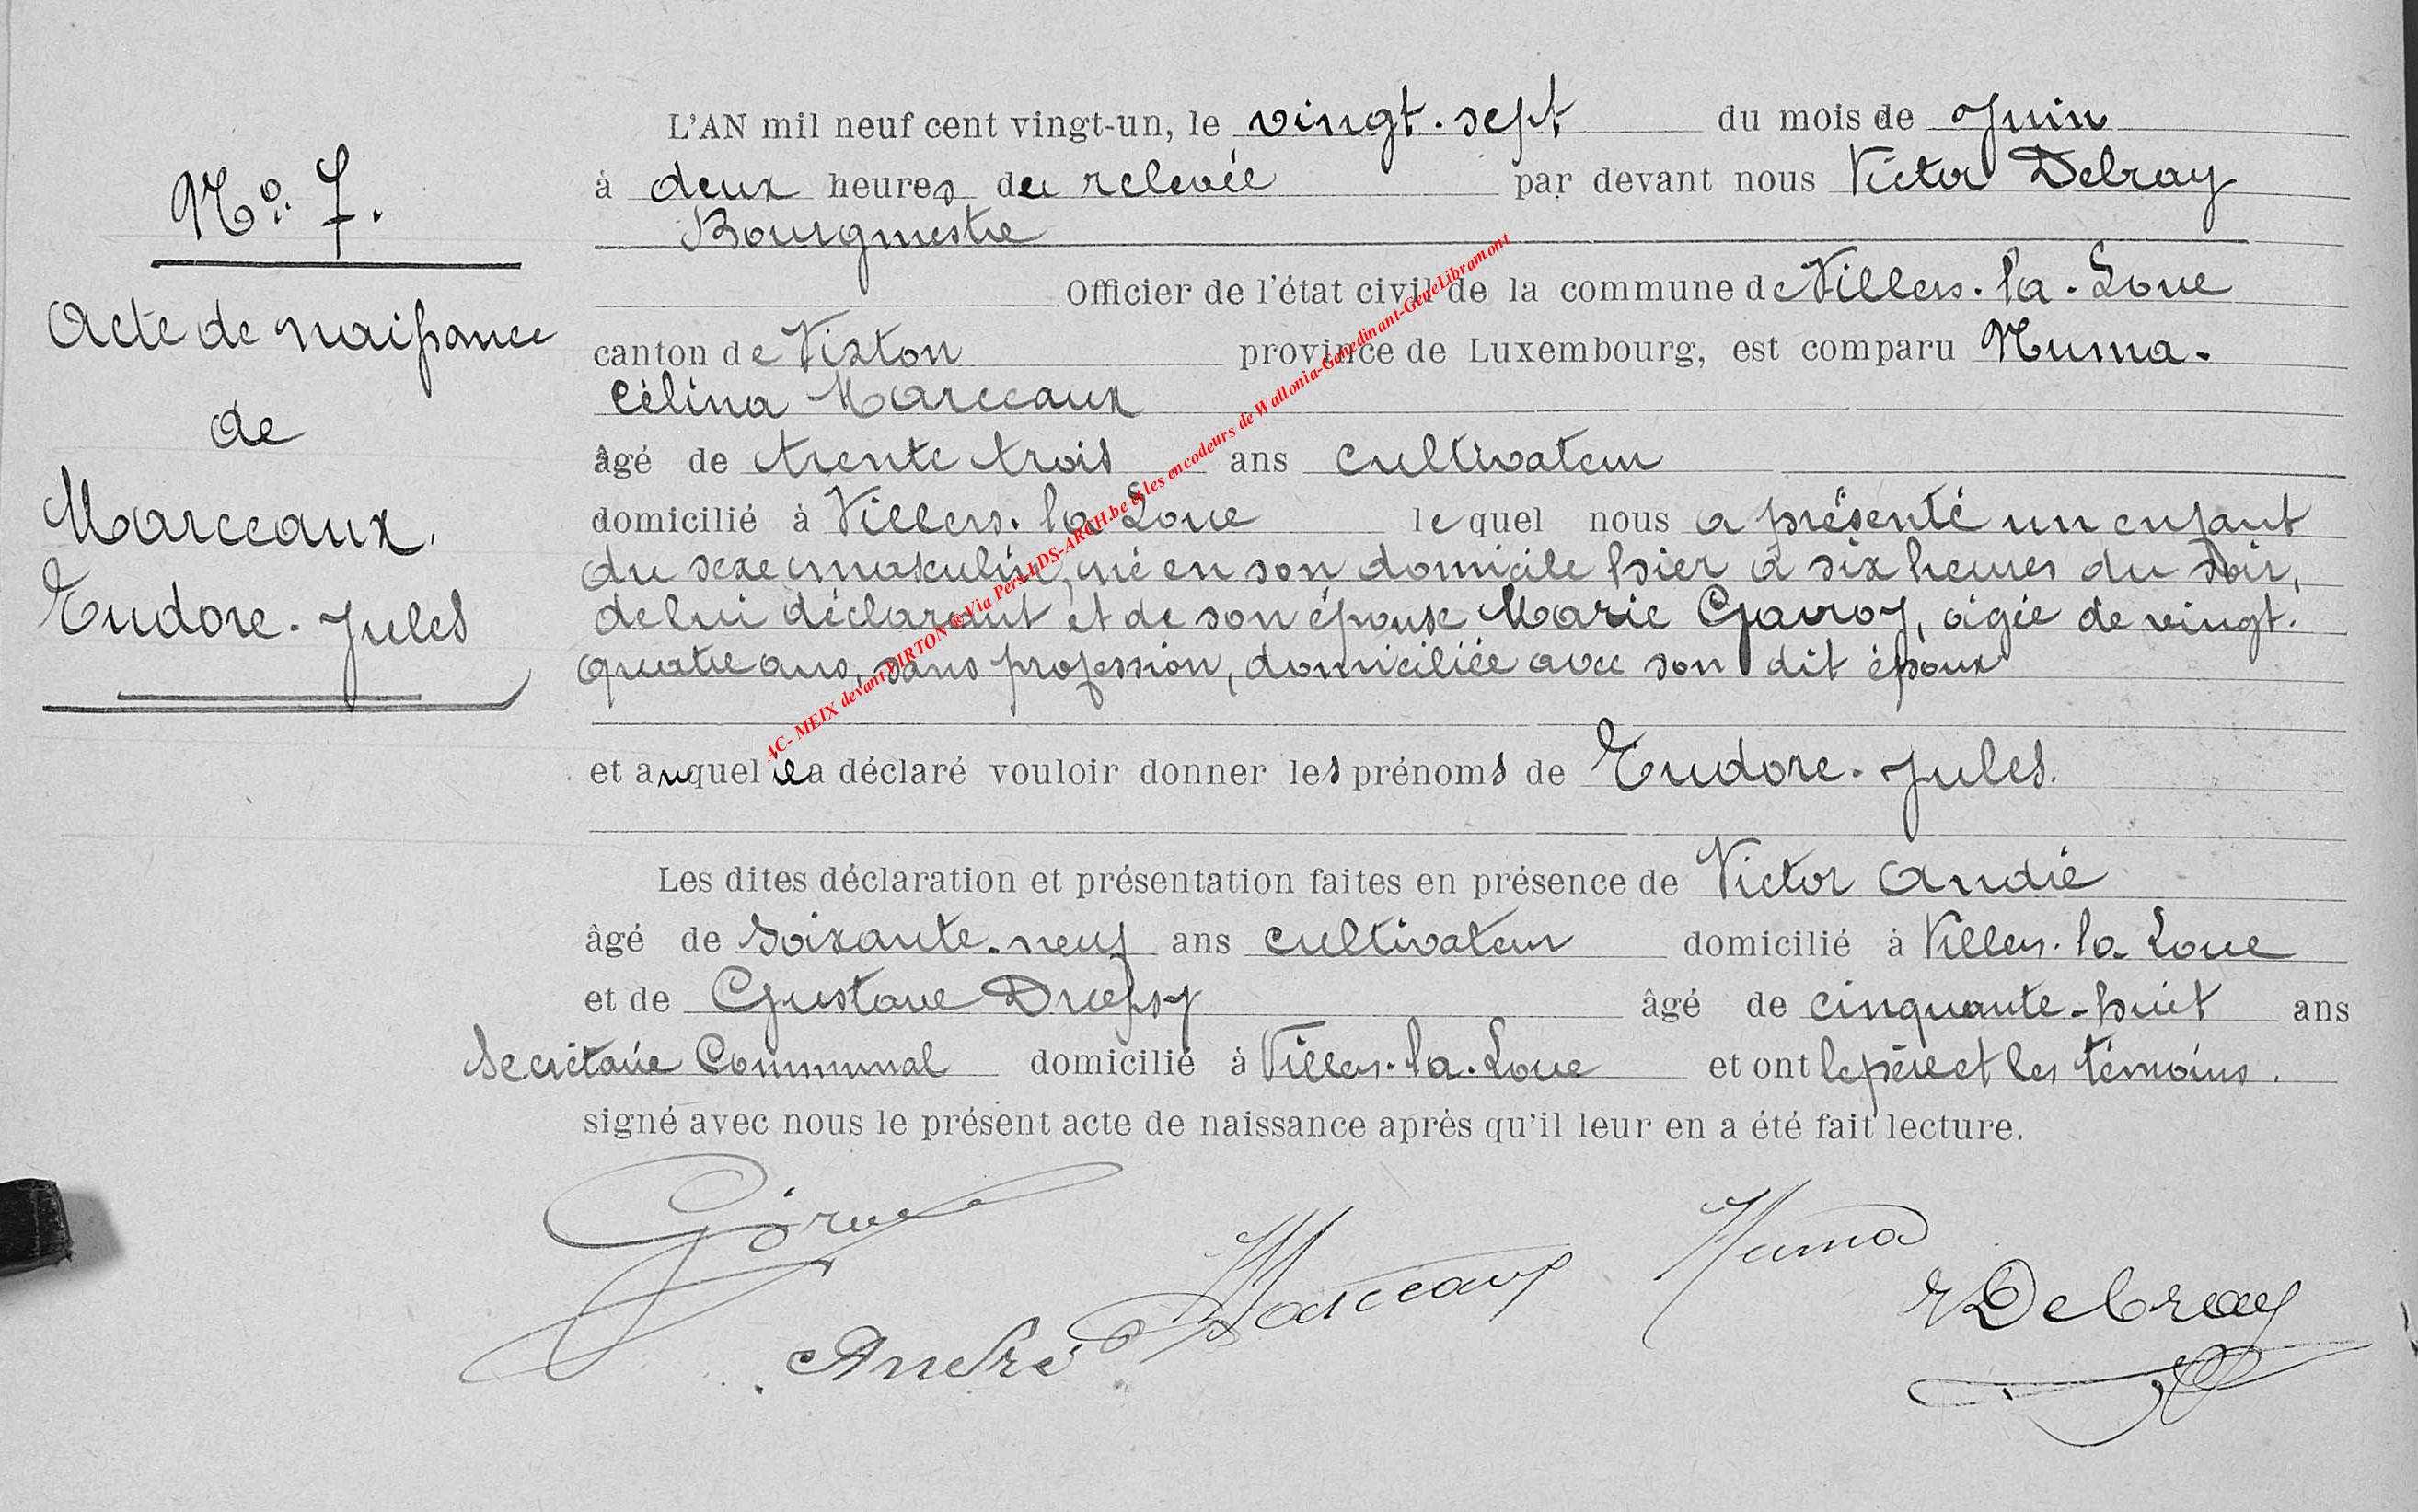 N° 7.
Acte de naissance
de
Marceaux.
Eudore-Jules
L'AN mil neuf cent vingt-un, le vingt-sept du mois de Juin
à deux heures de relevée par devant nous Victor Debray
Bourgmestre
Officier de l'état civil de la commune de Villers-la-Loue
canton de Virton province de Luxembourg, est comparu Numa-
Célina Marceaux
âgé de trente trois ans cultivateur
domicilié à Villers-la Loue lequel nous a présenté un enfant
du sexe masculin, né en son domicile hier à six heures du soir,
de lui déclarant et de son épouse Marie Gavroy, âgée de vingt-
quatre ans, sans profession, domiciliée avec son dit époux
et auquel il a déclaré vouloir donner les prénoms de Eudore-Jules.
Les dites déclaration et présentation faites en présence de Victor André
âgé de soixante-neuf ans cultivateur domicilié à Villers-la Loue
et de Gustave âgé de cinquante-huit ans
Secrétaire Communal domicilié à Villers-la-Loue et ont le père et les témoins.
signé avec nous le présent acte de naissance après qu'il leur en a été fait lecture.
Marceaux Numa
André
VDebray
AC- MEIX devant VIRTON ® Via Pers-LDS-ARCH.be et les encodeurs de Wallonia-Genedinant-GeneLibramont